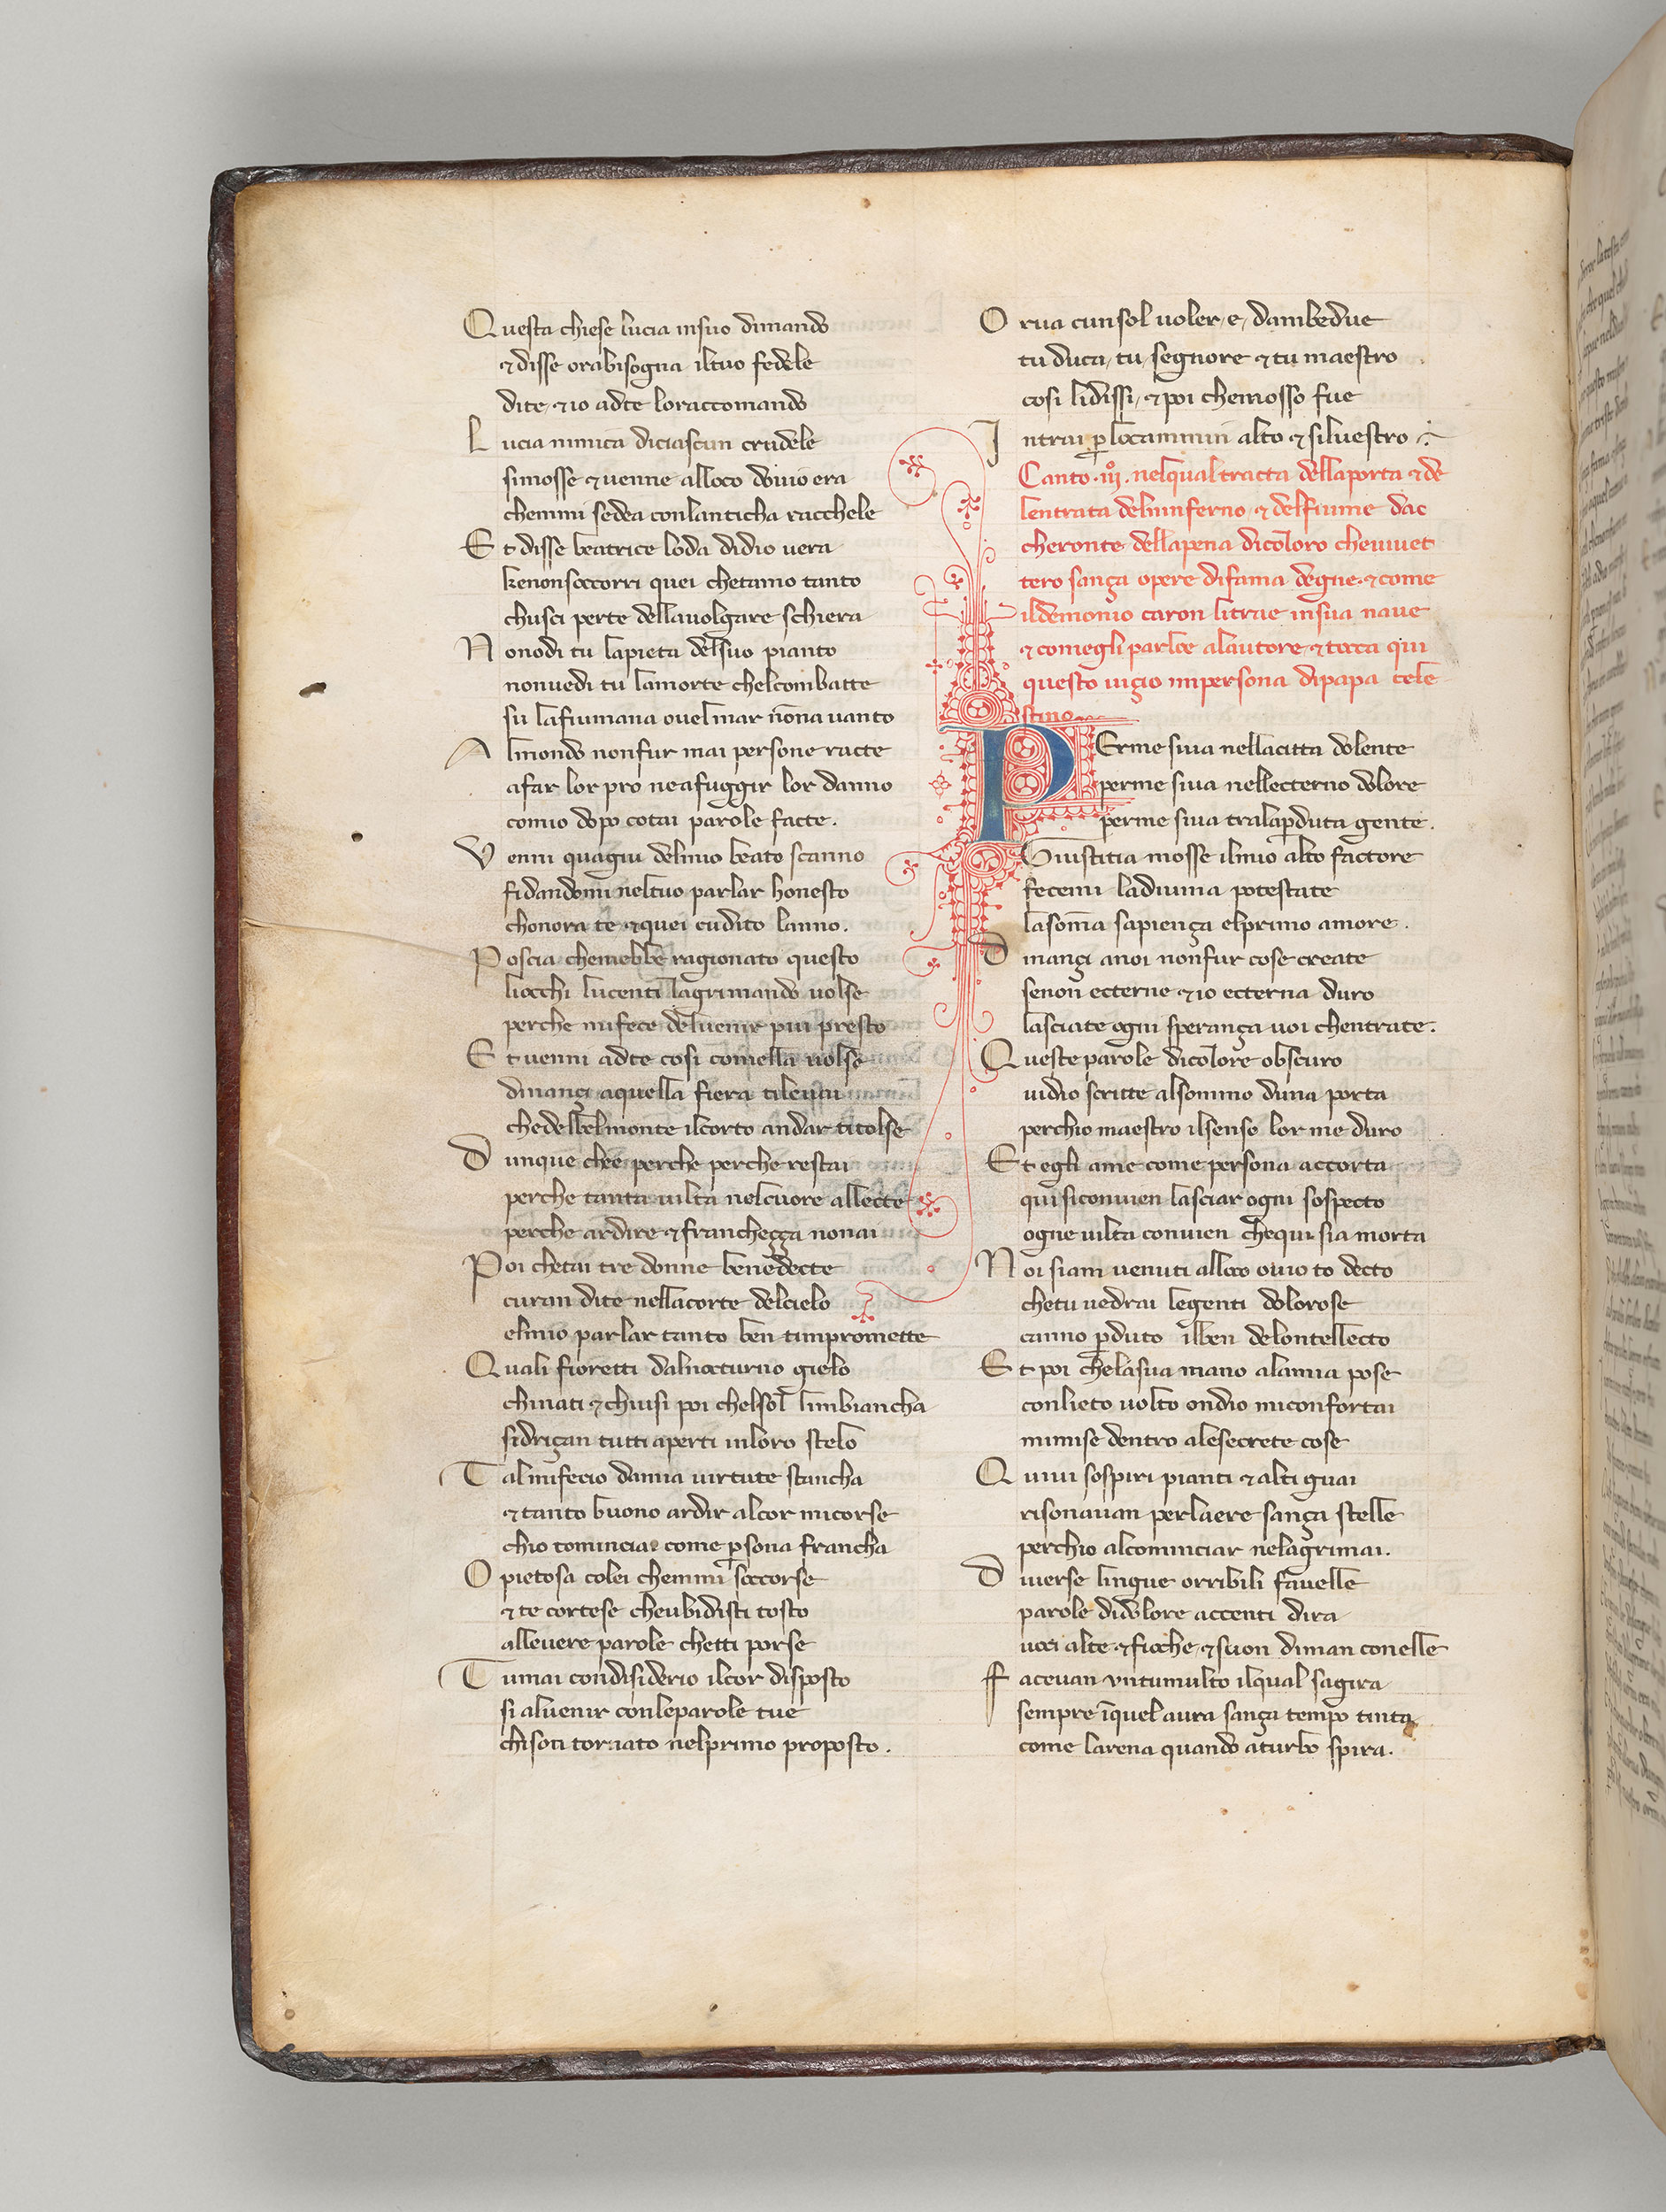 Questa chiese lucia insuo dimando
& disse orabisogna iltuo fedele
dite & io adte loraccomando
Lucia nimica diciascun crudele
simosse & uenne alloco douio era
chemmi sedea conlanticha racchele
Et disse beatrice loda didio uera
kenonsoccorri quei chetamo tanto
chusci perte dellauolgare schiera
Nonodi tu lapieta delsuo pianto
nonuedi tu lamorte chelcombatte
su lafiumana ouelmar nōna uanto
Almondo nonfur mai persone racte
afar lor pro neafuggir lor danno
comio dopo cotai parole facte.
Venni quagiu delmio beato scanno
fidandomi neltuo parlar honesto
chonora te & quei cudito lanno.
Poscia chemebbe ragionato questo
liocchi lucenti lagrimando uolse
perche mifece deluenir piu presto
Et uenni adte cosi comella uolse
dinançi aquella fiera tileuai
chedelbelmonte ilcorto andar titolse
Dunque chee perche perche restai
perche tanta uilta nelcuore allecte
perche ardire & francheçça nonai
Poi chetai tre donne benedecte
curan dite nellacorte delcielo
elmio parlar tanto ben timpromette
Quali fioretti dalnocturno gielo
chinati & chiusi poi chelsol limbiancha
sidriçan tutti aperti inloro stelo
Tal mifecio damia uirtute stancha
& tanto buono ardir alcor micorse
chio cominciai come p̱sona francha
O pietosa colei chemmi soccorse
& te cortese cheubidisti tosto
alleuere parole chetti porse
Tumai condisiderio ilcor disposto
si aluenir conleparole tue
chison tornato nelprimo proposto.
Orua cunsol uoler, e, dambedue
tu duca, tu, segnore & tu maestro
cosi lidissi, & poi chemosso fue
Intrai p̱ locammin alto & siluestro
Canto .iij. nelqual tracta dellaporta & de
lentrata delninferno & delfiume dac
cheronte dellapena dicoloro cheuiuet
tero sança opere difama degne. & come
ildemonio caron litrae insua naue
& comegli parloe alautore & tocca qui
questo uiçio impersona dipapa cele
stino
PErme siua nellacitta dolente
perme siua nellecterno dolore
perme siua tralap̱duta gente.
Giustitia mosse ilmio alto factore
fecemi ladiuina potestate
lasom̄a sapiença elprimo amore.
Dinançi amoi nonfur cose create
senon ecterne & io ecterna duro
lasciate ogni sperança uoi chentrate.
Queste parole dicolore obscuro
uidio scritte alsommo duna porta
perchio maestro ilsenso lor me duro
Et egli ame come persona accorta
qui siconuien lasciar ogni sospecto
ogne uilta conuien chequi sia morta
Noi siam uenuti alloco ouio to decto
chetu uedrai legenti dolorose
canno p̱duto ilben delontellecto
Et poi chelasua mano alamia pose
conlieto uolto ondio miconfortai
mimise dentro alesecrete cose
Quiui sospiri pianti & alti guai
risonauan perlaere sança stelle
perchio alcominciar nelagrimai.
Diuerse lingue orribili fauelle
parole didolore accenti dira
uoci alte & fioche & suon diman conelle
Faceuan vntumulto ilqual sagira
sempre ĩquel aura sança tempo tinta
come larena quando aturbo spira.